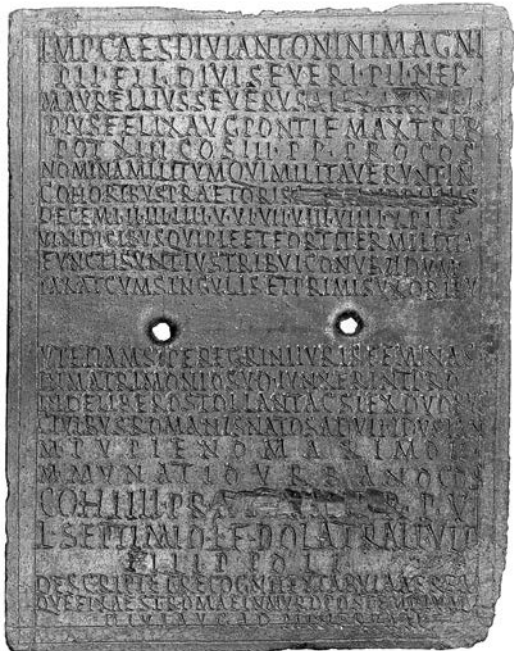 IMP CAES DIVI ANTONINI MAGNI
PII FIL DIVI SEVERI PII NEP
M AVRELLIVS SEVERVS
PIVS FELIX AVG PONTIF MAX TRIB
POT XIII COS III P P PROCOS
NOMINA MILITVM QVI MILITAVERVNT IN
COHORTIBVS PRAETORIS
DECEM I II III IIII V VI VII VIII VIIII X PIIS
VINDICIBVS QVI PIE ET FORTITER MILITIA
FVNCTI SVNT IVS TRIBVI CONVBII DVM
TAXAT CVM SINGVLIS ET PRIMIS VXORIBV
VT ETIAM SI PEREGRINI IVRIS FEMINAS
IN MATRIMONIO SVO IVNXERINT PRO
INDE LIBEROS TOLLANT AC SI EX DVOBVS
CIVIBVS ROMANIS NATOS A D VII IDVS IAN
M PVPIENO MAXIMO II
M MVNATIO VRBANO COS
COH IIII PR P V
L SEPTIMIO L F DOLATRALI
FIL POLI
DESCRIPT ET RECOGNIT EX TABVLA AEREA
QVE FIXA EST ROMAE IN MVRO POS TEMPLVM
DIVI AVG AD MINERVAM